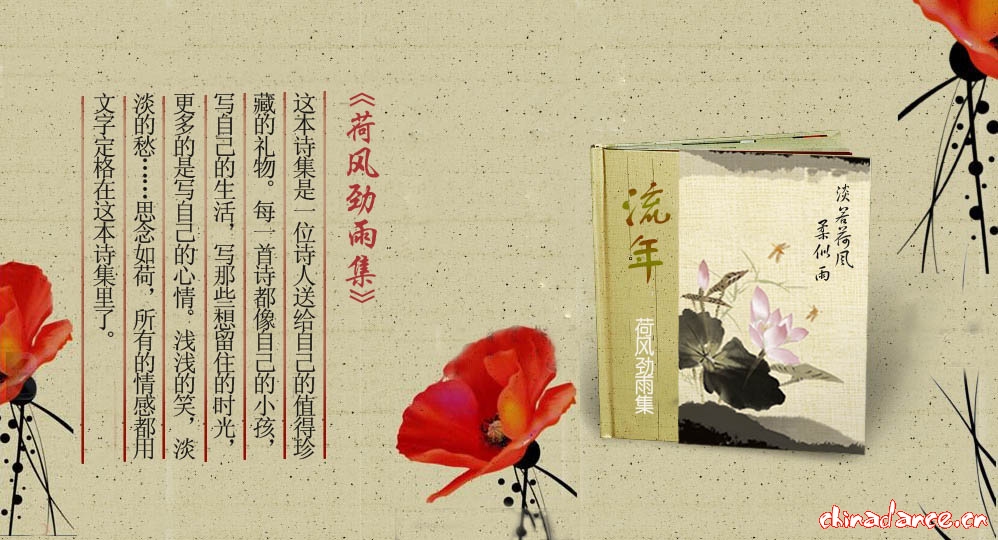 《荷风劲雨集》
这本诗集是一位诗人送给自己的值得珍
藏的礼物。每一首诗都像自己的小孩，
写自己的生活，写那些想留住的时光，
更多的是写自己的心情。浅浅的笑，淡
淡的愁……思念如荷，所有的情感都用
文字定格在这本诗集里了。
流年
荷风劲雨集
淡若荷风
柔似雨
chinadance.cn